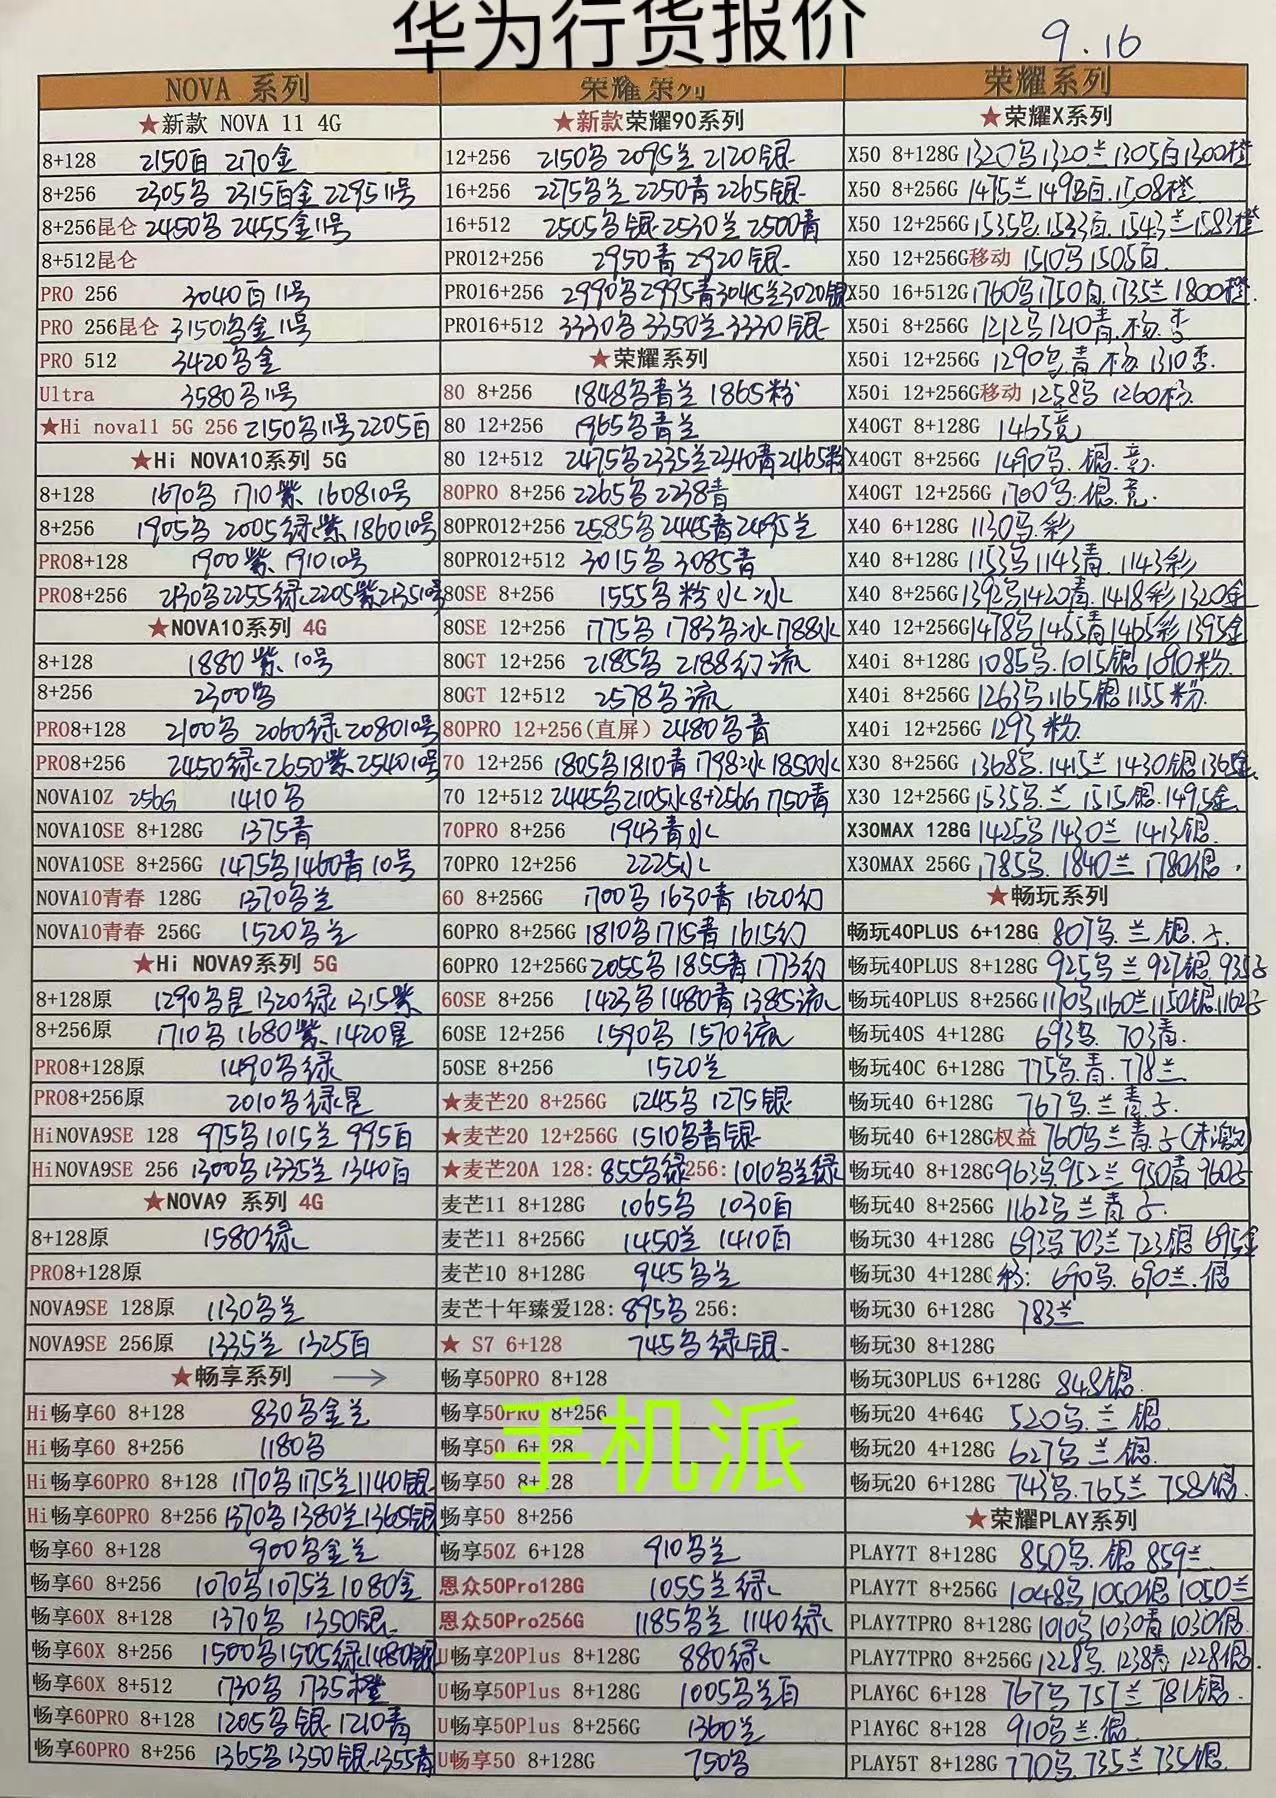 华为行货报价
9.16
NOVA 系列
★新款 NOVA 11 4G
8+128 2150白 2170金
8+256 2305乌 2315白金 2295 11号
8+256昆仑 2450乌 2455金11号
8+512昆仑
PRO 256 3040白11号
PRO 256昆仑 3150乌金11号
PRO 512 3420乌金
Ultra 3580乌11号
★Hi nova11 5G 256 2150乌11号2205白
★Hi NOVA10系列 5G
8+128 1670乌 1710紫 1608 10号
8+256 1905乌 2005绿紫 1860 10号
PRO8+128 1900紫 1910 10号
PRO8+256 2130乌2255绿2205紫2135 10号
★NOVA10系列 4G
8+128 1880紫 10号
8+256 2300乌
PRO8+128 2100乌 2060绿 2080 10号
PRO8+256 2450绿 2650紫 2540 10号
NOVA10Z 256G 1410乌
NOVA10SE 8+128G 1375青
NOVA10SE 8+256G 1475乌1460青10号
NOVA10青春 128G 1370乌兰
NOVA10青春 256G 1520乌兰
★Hi NOVA9系列 5G
8+128原 1290乌星 1320绿 1315紫
8+256原 1710乌 1680紫 1420星
PRO8+128原 1490乌绿
PRO8+256原 2010乌绿星
HiNOVA9SE 128 975乌1015兰 995白
HiNOVA9SE 256 1300乌1335兰1340白
★NOVA9 系列 4G
8+128原 1580绿
PRO8+128原
NOVA9SE 128原 1130乌兰
NOVA9SE 256原 1335兰 1325白
★畅享系列 →
Hi畅享60 8+128 830乌金兰
Hi畅享60 8+256 1180乌
Hi畅享60PRO 8+128 1170乌1175兰1140银
Hi畅享60PRO 8+256 1370乌1380兰1365银
畅享60 8+128 900乌金兰
畅享60 8+256 1070乌1075兰1080金
畅享60X 8+128 1370乌 1350银
畅享60X 8+256 1500乌1505绿1480银
畅享60X 8+512 1730乌 1735橙
畅享60PRO 8+128 1205乌银1210青
畅享60PRO 8+256 1365乌1350银1355青
荣耀系列
★新款荣耀90系列
12+256 2150乌 2095兰 2120银
16+256 2275乌兰 2250青 2265银
16+512 2505乌银 2530兰 2500青
PRO12+256 2950青 2920银
PRO16+256 2990乌2995青3045兰3020银
PRO16+512 3330乌 3350兰 3330银
★荣耀系列
80 8+256 1848乌青兰 1865粉
80 12+256 1965乌青兰
80 12+512 2475乌2335兰2340青2465粉
80PRO 8+256 2265乌 2238青
80PRO12+256 2585乌 2445青2495兰
80PRO12+512 3015乌 3085青
80SE 8+256 1555乌粉水冰
80SE 12+256 1775乌 1783乌冰1788水
80GT 12+256 2185乌 2188幻流
80GT 12+512 2578乌流
80PRO 12+256(直屏) 2480乌青
70 12+256 1805乌1810青1798冰1850水
70 12+512 2445乌2105水8+256G 1750青
70PRO 8+256 1943青水
70PRO 12+256 2225水
60 8+256G 1700乌 1630青 1620幻
60PRO 8+256G 1810乌1715青1615幻
60PRO 12+256G 2055乌1855青1773幻
60SE 8+256 1423乌1480青1385流
60SE 12+256 1590乌 1570流
50SE 8+256 1520兰
★麦芒20 8+256G 1245乌 1275银
★麦芒20 12+256G 1510乌青银
★麦芒20A 128: 855乌绿256: 1010乌兰绿
麦芒11 8+128G 1065乌 1030白
麦芒11 8+256G 1450兰 1410白
麦芒10 8+128G 945乌兰
麦芒十年臻爱128: 895乌 256:
★ S7 6+128 745乌绿银
畅享50PRO 8+128
畅享50PRO 8+256
畅享50 6+128
畅享50 8+128
畅享50 8+256
畅享50Z 6+128 910乌兰
恩众50Pro128G 1055兰绿
恩众50Pro256G 1185乌兰 1140绿
U畅享20Plus 8+128G 880绿
U畅享50Plus 8+128G 1005乌兰白
U畅享50Plus 8+256G 1360兰
U畅享50 8+128G 750乌
手机派
荣耀系列
★荣耀X系列
X50 8+128G 1320乌1320兰1305白1300橙
X50 8+256G 1475兰 1493白 1508橙
X50 12+256G 1535乌 1533白 1543兰 1583橙
X50 12+256G移动 1510乌1505白
X50 16+512G 1760乌1750白 1735兰 1800橙
X50i 8+256G 1212乌1210青 杨 杏
X50i 12+256G 1290乌青 杨 1310杏
X50i 12+256G移动 1258乌 1260杨
X40GT 8+128G 1465竞
X40GT 8+256G 1490乌.银.竞.
X40GT 12+256G 1700乌.银.竞.
X40 6+128G 1130乌.彩
X40 8+128G 1153乌1143青 1143彩
X40 8+256G 1392乌1420青 1418彩1320金
X40 12+256G 1478乌1455青1465彩1395金
X40i 8+128G 1085乌.1015银1090粉.
X40i 8+256G 1263乌1165银1155粉.
X40i 12+256G 1293粉.
X30 8+256G 1368乌.1415兰1430银1365金
X30 12+256G 1535乌.兰 1515银.1495金
X30MAX 128G 1425乌1430兰 1413银.
X30MAX 256G 1785乌. 1840兰 1780银.
★畅玩系列
畅玩40PLUS 6+128G 807乌.兰 银.子.
畅玩40PLUS 8+128G 925乌兰 927银 935子
畅玩40PLUS 8+256G 1170乌1160兰1150银1162子
畅玩40S 4+128G 693乌. 703青.
畅玩40C 6+128G 775乌.青.778兰
畅玩40 6+128G 767乌.兰青子.
畅玩40 6+128G权益 760乌兰青子(未激)
畅玩40 8+128G 963乌952兰 950青 960子
畅玩40 8+256G 1162乌兰青 子.
畅玩30 4+128G 693乌703兰 723银 695金
畅玩30 4+128G 移: 690乌. 690兰.银
畅玩30 6+128G 783兰
畅玩30 8+128G
畅玩30PLUS 6+128G 848银
畅玩20 4+64G 520乌.兰 银.
畅玩20 4+128G 627乌 兰银.
畅玩20 6+128G 743乌.765兰 758银.
★荣耀PLAY系列
PLAY7T 8+128G 850乌.银 859兰
PLAY7T 8+256G 1048乌1050银1050兰
PLAY7TPRO 8+128G 1010乌1030青1030银.
PLAY7TPRO 8+256G 1228乌.1238青 1228银.
PLAY6C 6+128 767乌 757兰 781银.
PlAY6C 8+128 910乌兰.银
PLAY5T 8+128G 770乌.735兰 735银.